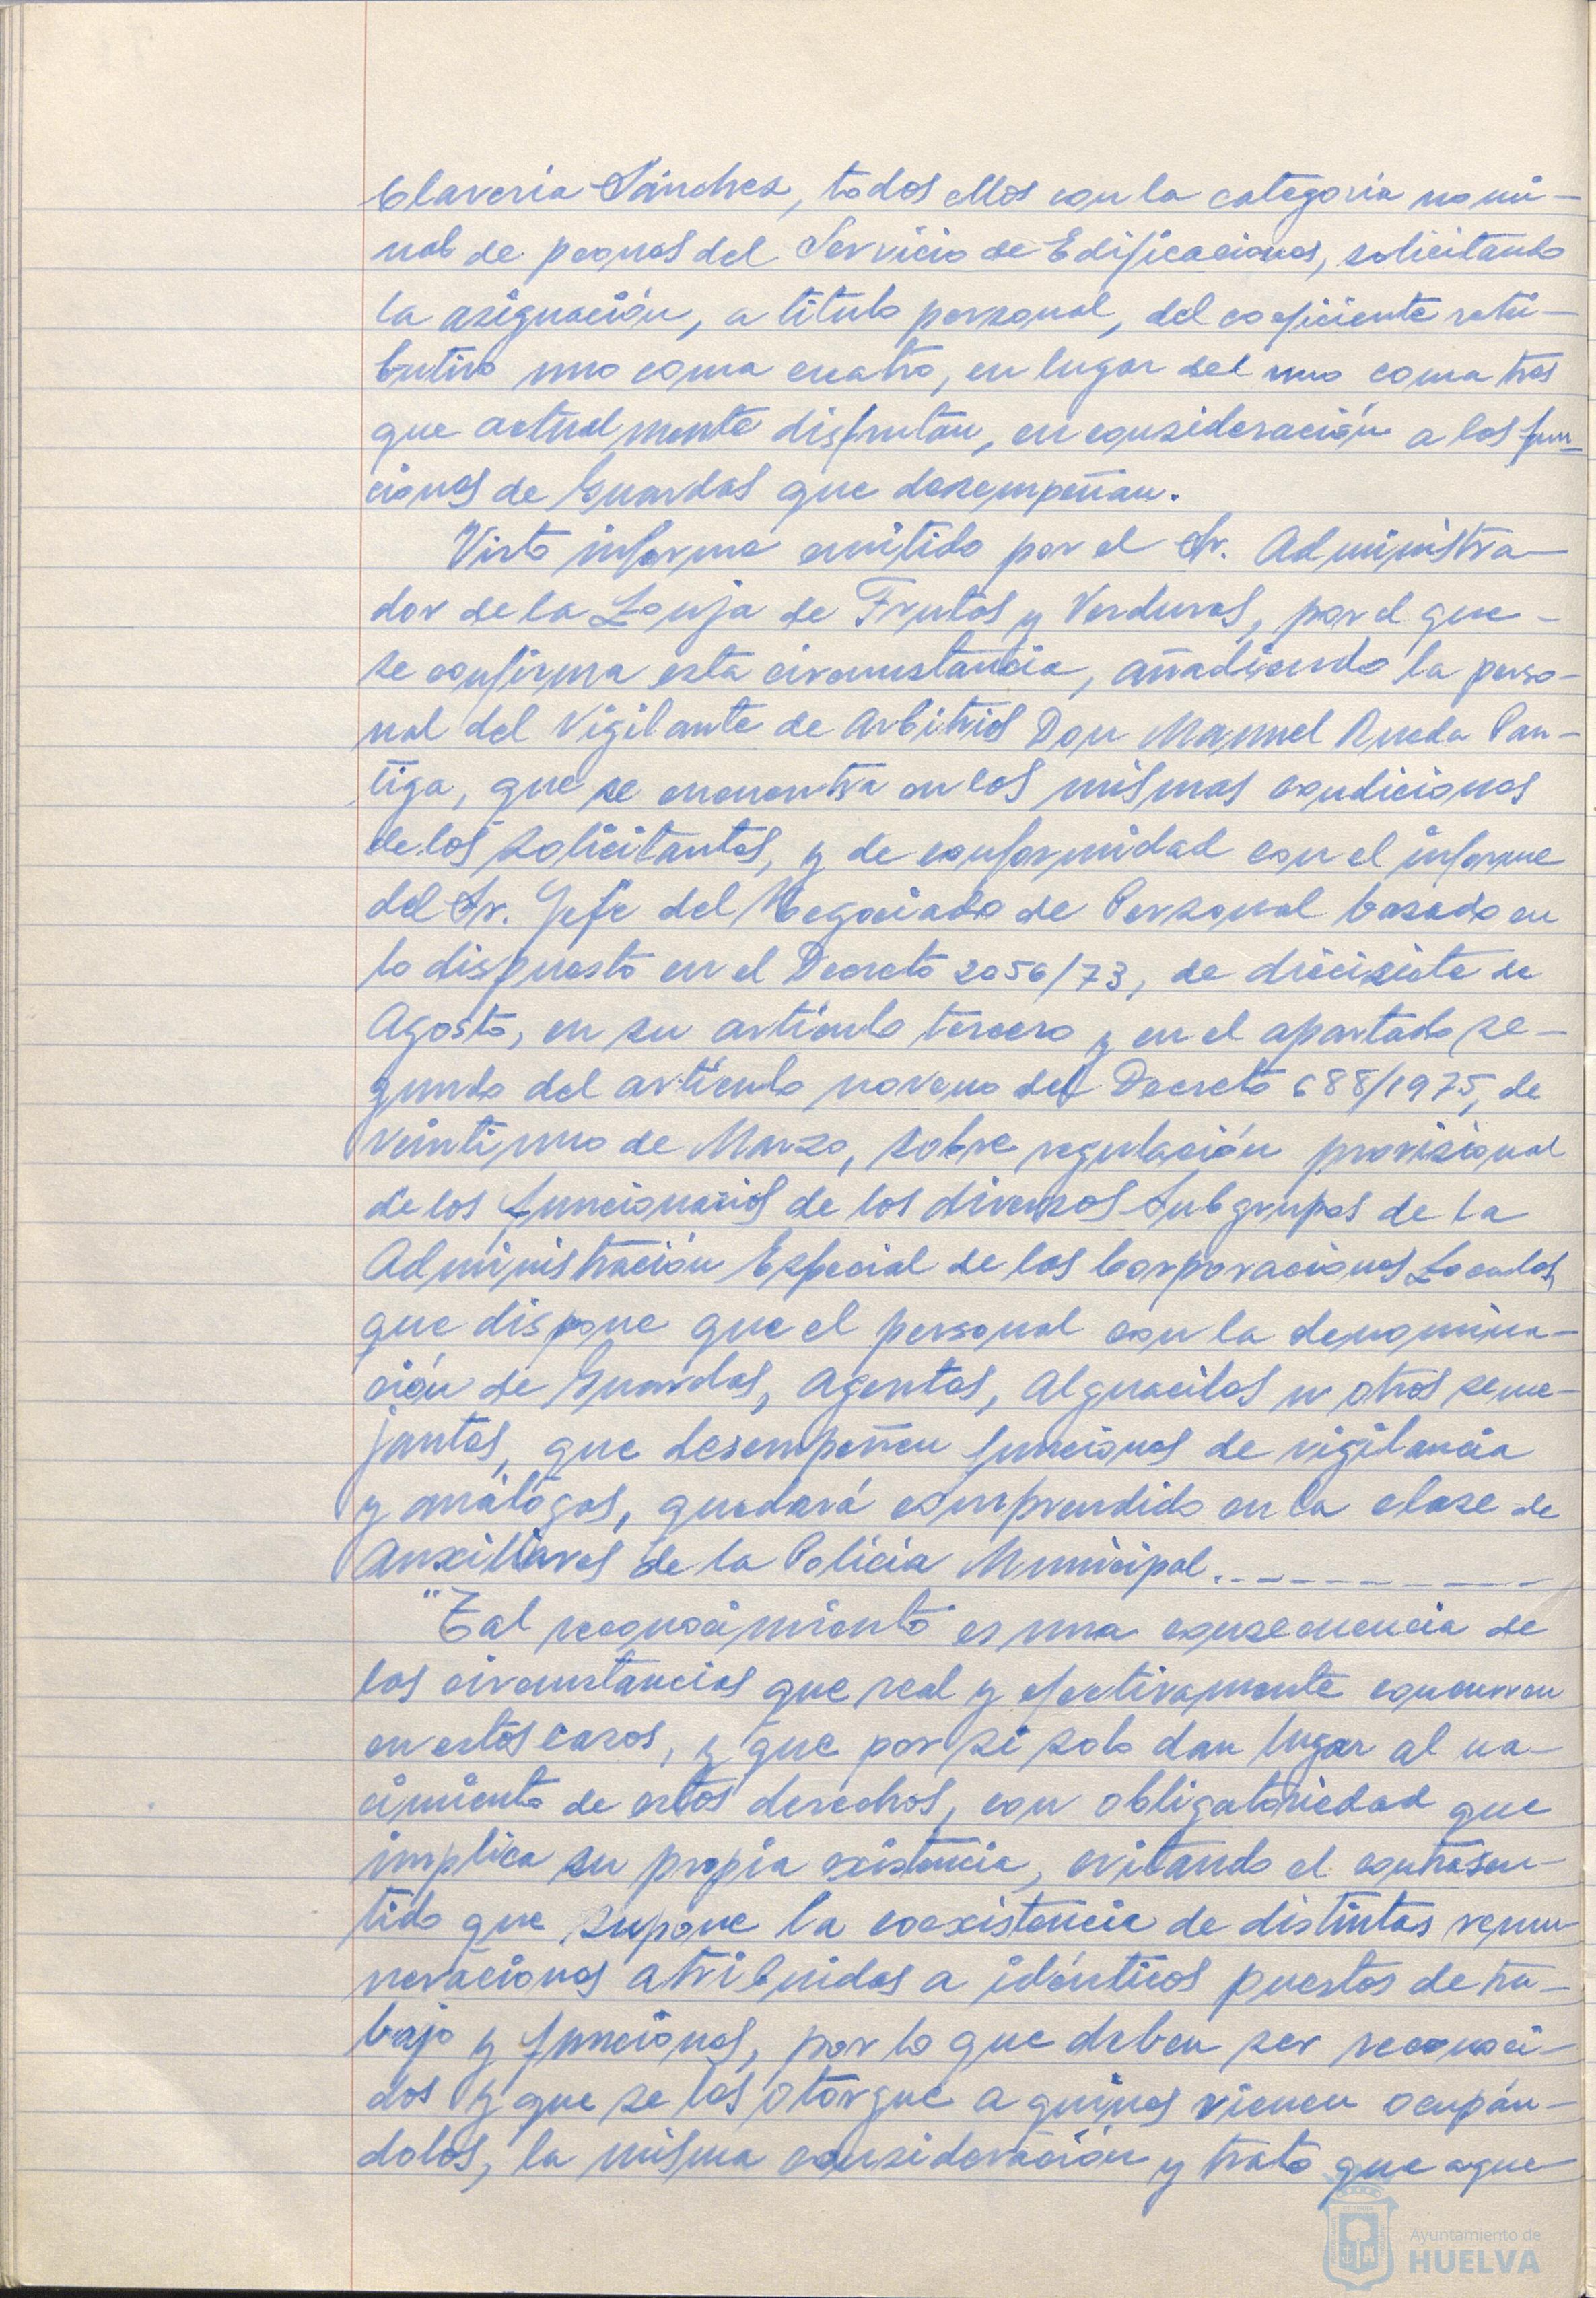 Claveria Sánchez, todos ellos con la categoría nomi-
nal de peones del Servicio de Edificaciones, solicitando
la asignación, a titulo personal, del coeficiente retri-
butivo uno coma cuatro, en lugar del uno coma tres
que actualmente disfrutan, en consideración a las fun-
ciones de Guardas que desempeñan.
Visto informe emitido por el Sr. Administra-
dor de la Lonja de Frutas y Verduras, por el que -
se confirma esta circunstancia, añadiendo la perso-
nal del Vigilante de Arbitrios Don Manuel Rueda Pan-
tiga, que se encuentra en las mismas condiciones
de los solicitantes, y de conformidad con el informe
del Sr. Jefe del Negociado de Personal basado en
lo dispuesto en el Decreto 2056/73, de diecisiete de
Agosto, en su artículo tercero y en el apartado se-
gundo del artículo noveno del Decreto 688/1975, de
veintiuno de Marzo, sobre regulación provisional
de los funcionarios de los diversos Subgrupos de la
Administración Especial de las Corporaciones Locales,
que dispone que el personal con la denomina-
ción de Guardas, Agentes, Alguaciles u otros seme-
jantes, que desempeñen funciones de vigilancia
y análogas, quedará comprendido en la clase de
Auxiliares de la Policía Municipal.---------
"Tal reconocimiento es una consecuencia de
las circunstancias que real y efectivamente concurren
en estos casos, y que por si solo dan lugar al na-
cimiento de estos derechos, con obligatoriedad que
implica su propia existencia, evitando el contrasen-
tido que supone la coexistencia de distintas remu-
neraciones atribuidas a idénticos puestos de tra-
bajo y funciones, por lo que deben ser reconoci-
dos y que se les otorgue a quines vienen ocupán-
dolos, la misma consideración y trato que aque-
Ayuntamiento de
HUELVA